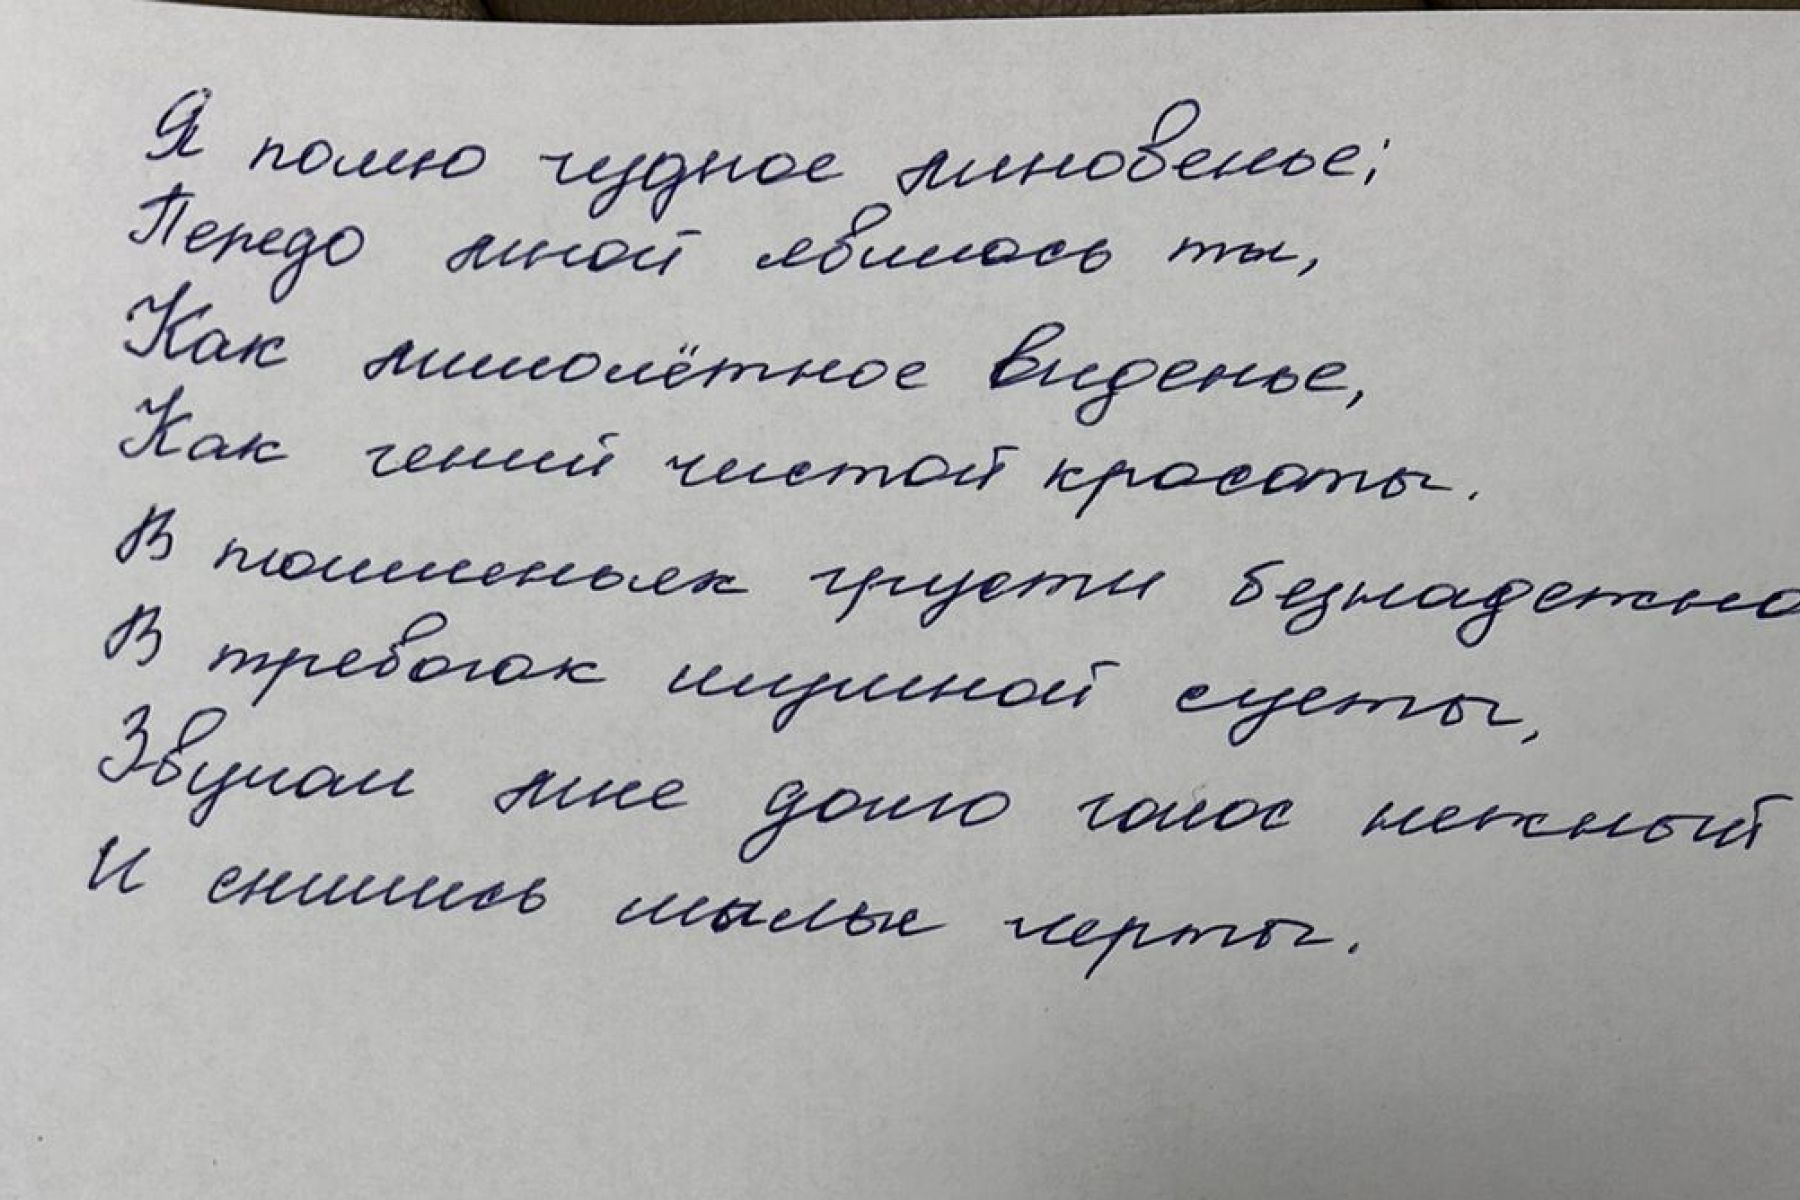 Я помню чудное мгновенье;
Передо мной явилась ты,
Как мимолётное виденье,
Как гений чистой красоты.
В томленьях грусти безнадежно
В тревогах шумной суеты,
Звучал мне долго голос нежный
И снились мылые черты.